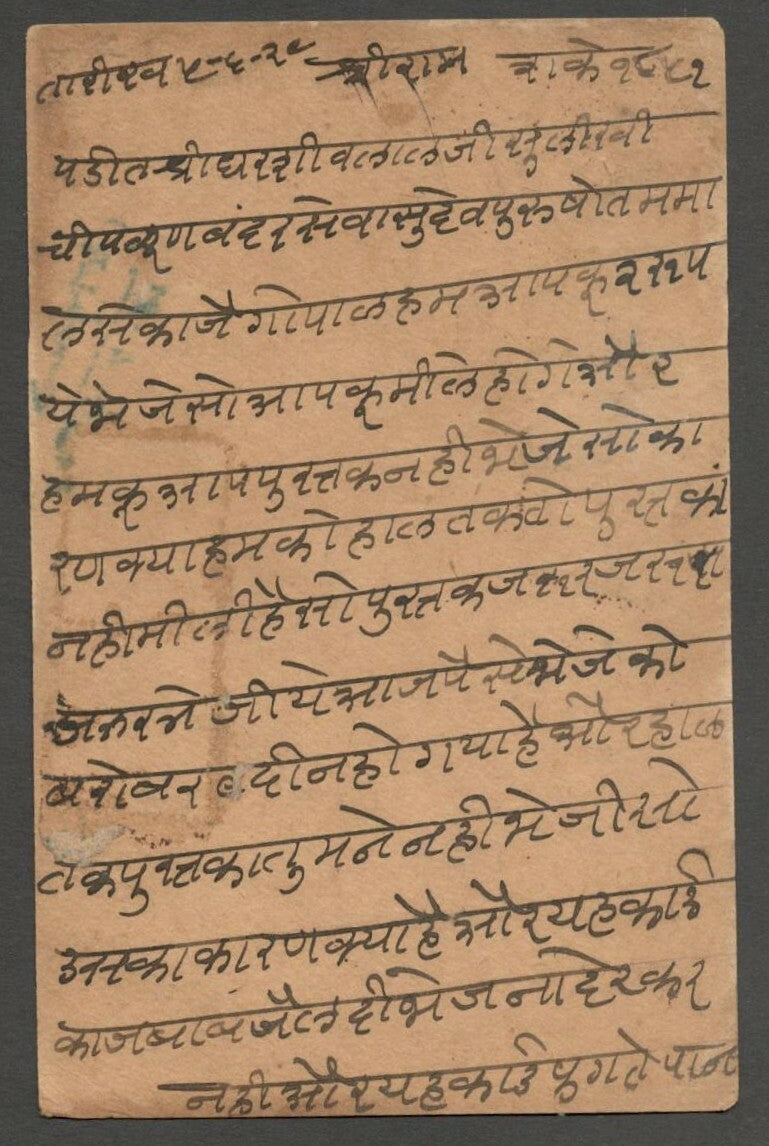 तारीख ५-६-२९ श्रीराम शके १८५१
पडीत श्रीधरशीवलालजी सु लीखी
चीपळूण बंदरसे वासुद्देव पुरुषोतम मा
लेसे का जैगोपाळ हम आपकू २ रुप
ये भेजे सो आपकू मीले होगे और
हमकू आप पुस्तक नही भेजे सो का
रण क्या हमको हाल तक वो पुस्तकां
नही मीली है सो पुस्तक जरुर जरुर
जरुर भेजीये आज पैसे भेजे को
बरोबर दीन हो गया है और हाल
तक पुस्तका तुमने नही भेजी सो
उसका कारण क्या है और यह कार्ड
का जबाब जैलदी भेजना देर कर
नही और यह कार्ड पुगते पान